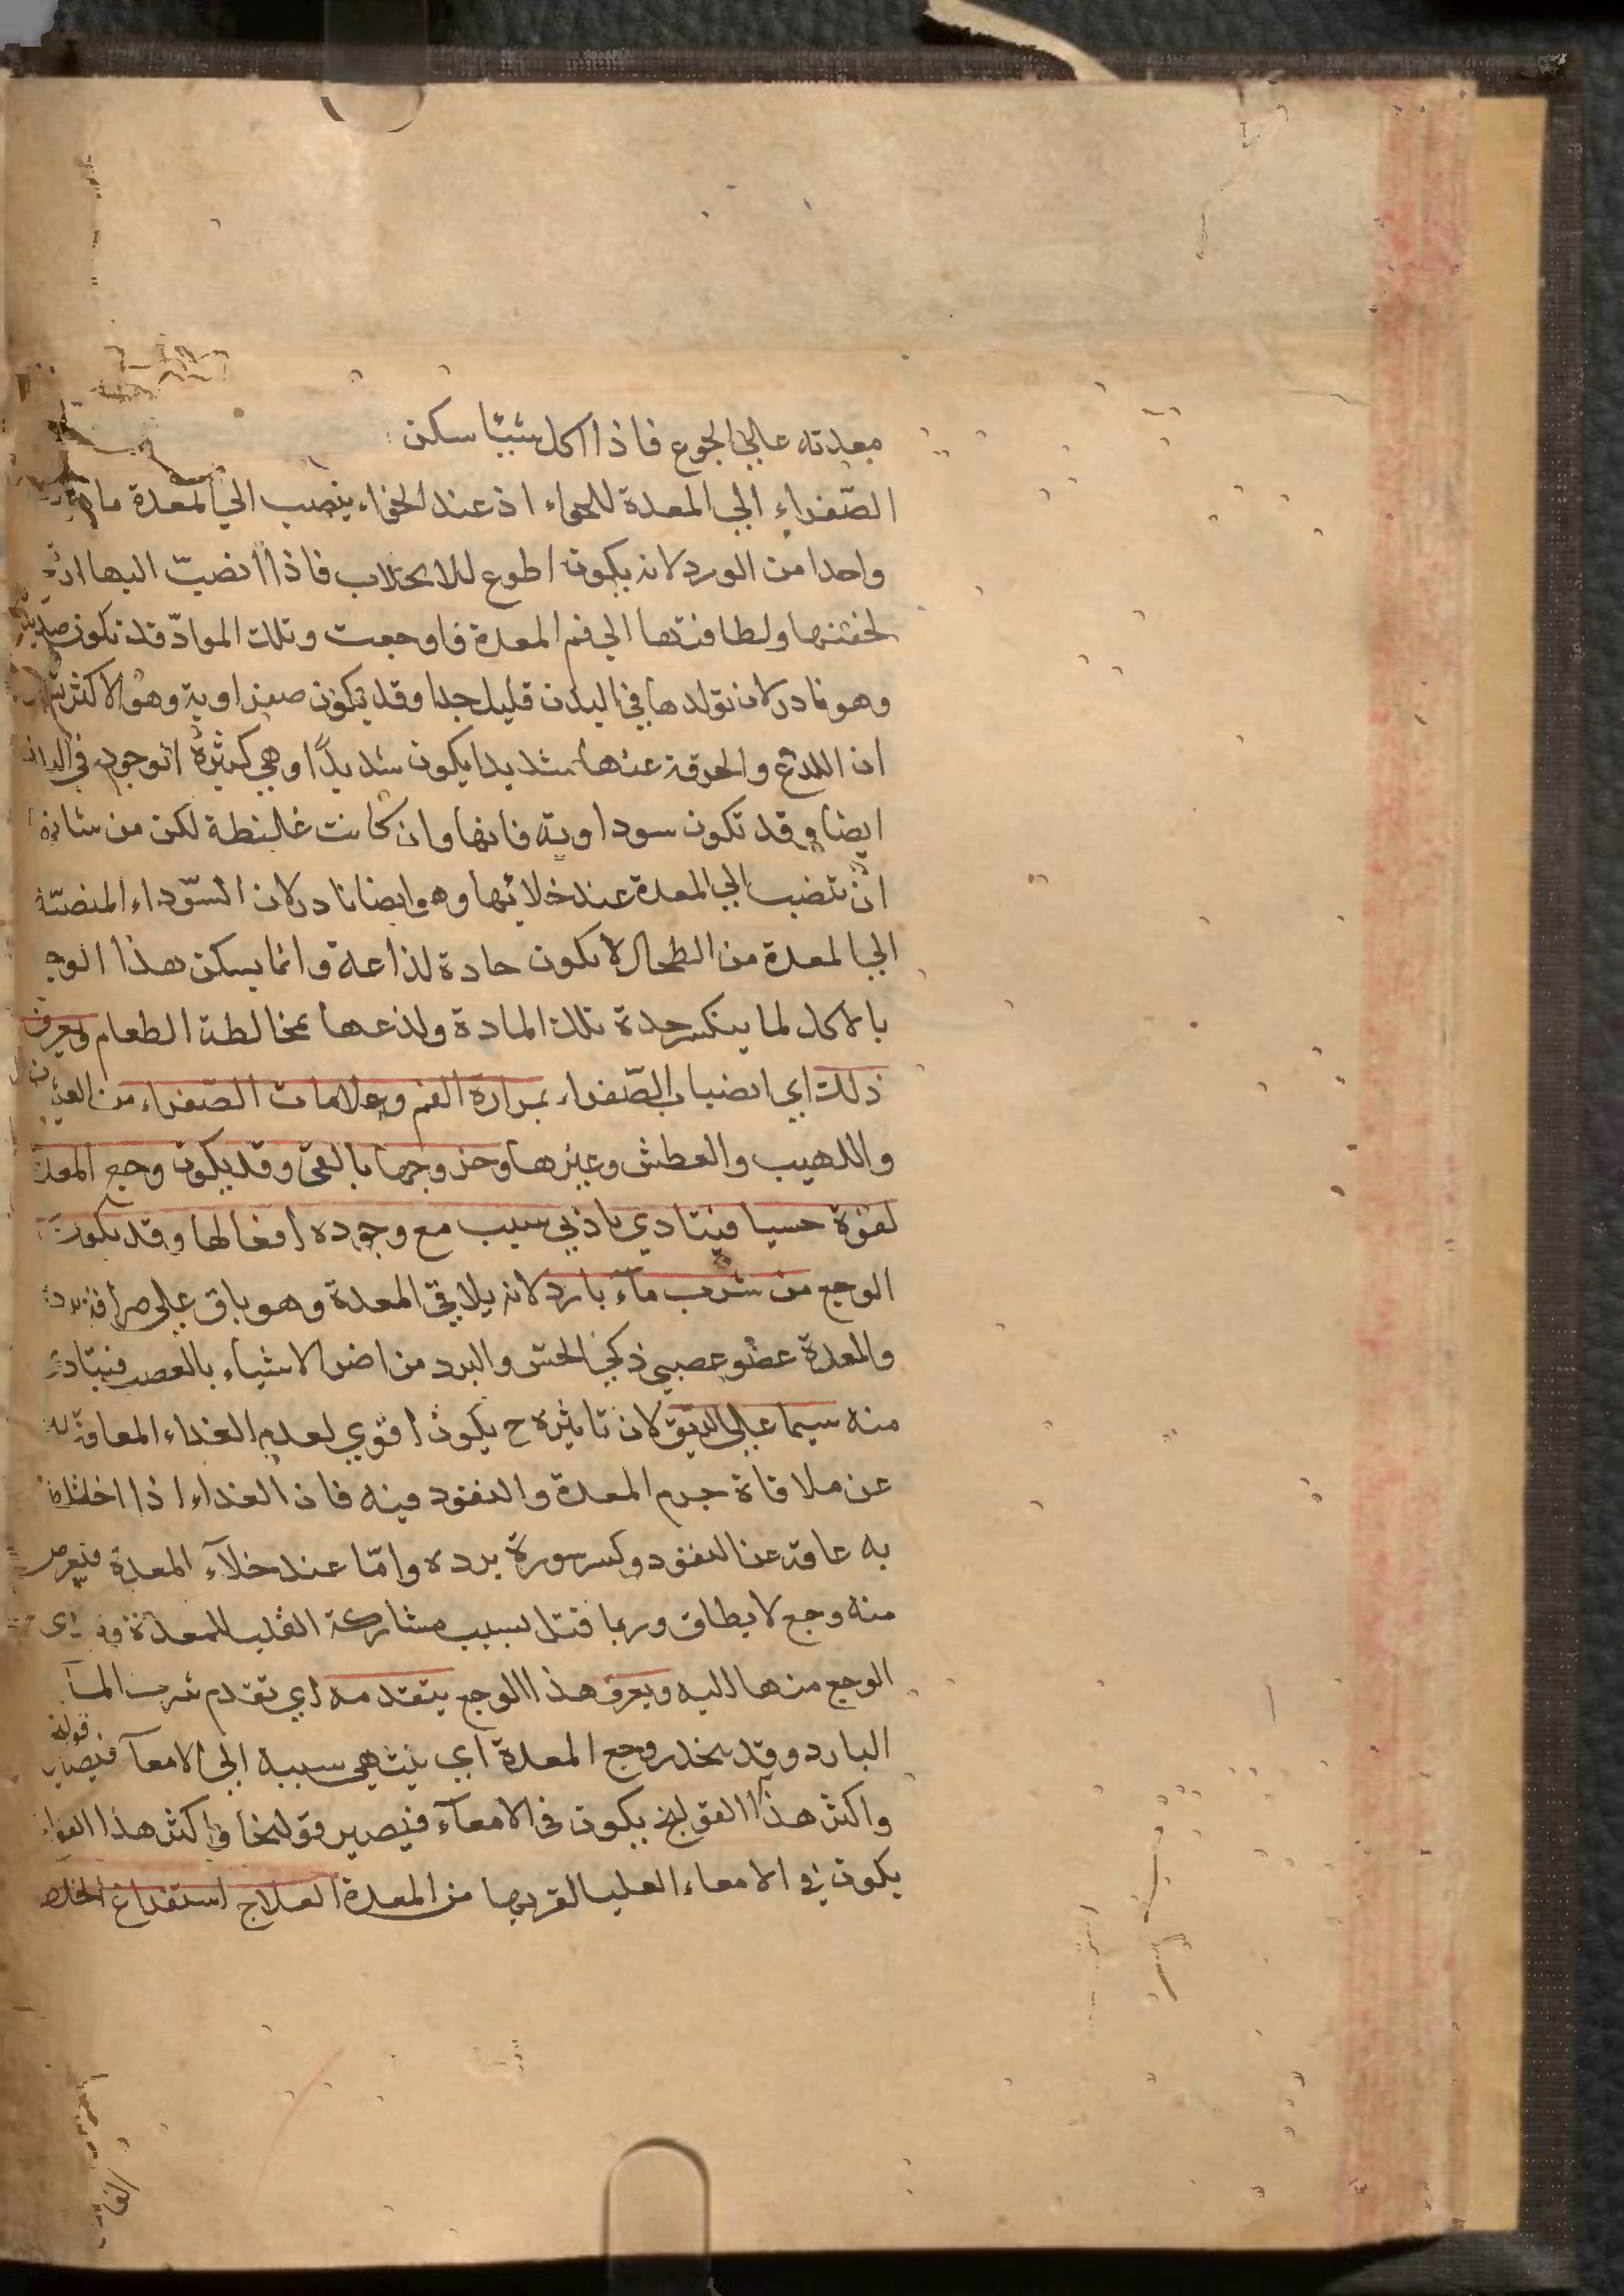 معدته علي الجوع فاذا اكل شيئا سكن
الصّفراء الي المعدة للخواء اذ عند الخواء ينصب الي المعدة
واحدا من الورد لانه يكون اطوع للانجلاب فاذا انصبّ اليها
لخفتها ولطافتها الي فم المعدة فاوجعت وتلك الموادّ قد تكون
وهو نادر لان تولدها في البدن قليل جدا وقد تكون صفراوية وهو الاكثر
ان اللدغ والحرقة عنها شديدا يكون شديدًا وهي كثيرة الوجود في
ايضا وقد تكون سوداوية فانها وان كانت غليظة لكن من شانها
ان تنصب الي المعدة عند خلائها وهو ايضا نادر لان السّوداء المنصبّة
الي المعدة من الطحال لا يكون حادة لذاعة وانما يسكن هذا الوجع
بالاكل لما ينكسر حدة تلك المادة ولذعها بمخالطة الطعام ويعرف
ذلك اي انصباب الصّفراء بمرارة الفم وعلامات الصّفراء من
واللهيب والعطش وغيرها وخروجها بالقئ وقد يكون وجع المعدة
لقوة حسها فيتاذي باذني سبب مع وجوده افعالها وقد يكون
الوجع من شرب ماء بارد لانه يلاقي المعدة وهو باق علي صرافة برده
والمعدة عضو عصبي ذكي الحس والبرد من اضر الاشياء بالعصب فيتاذي
منه سيما علي الريق لان تاثيره ح يكون اقوي لعدم الغذاء المعاوق له
عن ملاقاة جرم المعدة والنفوذ فيه فان الغذاء اذا اختلط
به عاقه عن النفوذ وكسر سورة برده وامّا عند خلآء المعدة فيعرض
منه وجع لا يطاق وربما قتل لسبب مشاركة القلب للمعدة
الوجع منها اليه ويعرف هذا الوجع بتقدمه اي تقدم شرب المآ
البارد وقد ينحدر وجع المعدة اي ينتهي سببه الي الامعآ فيصير قولنج
واكثر هذا القولنج يكون في الامعآء فيصير قولنجا واكثر هذا القولنج
يكون في الامعاء العليا لقربها من المعدة العلاج استفراغ الخلط